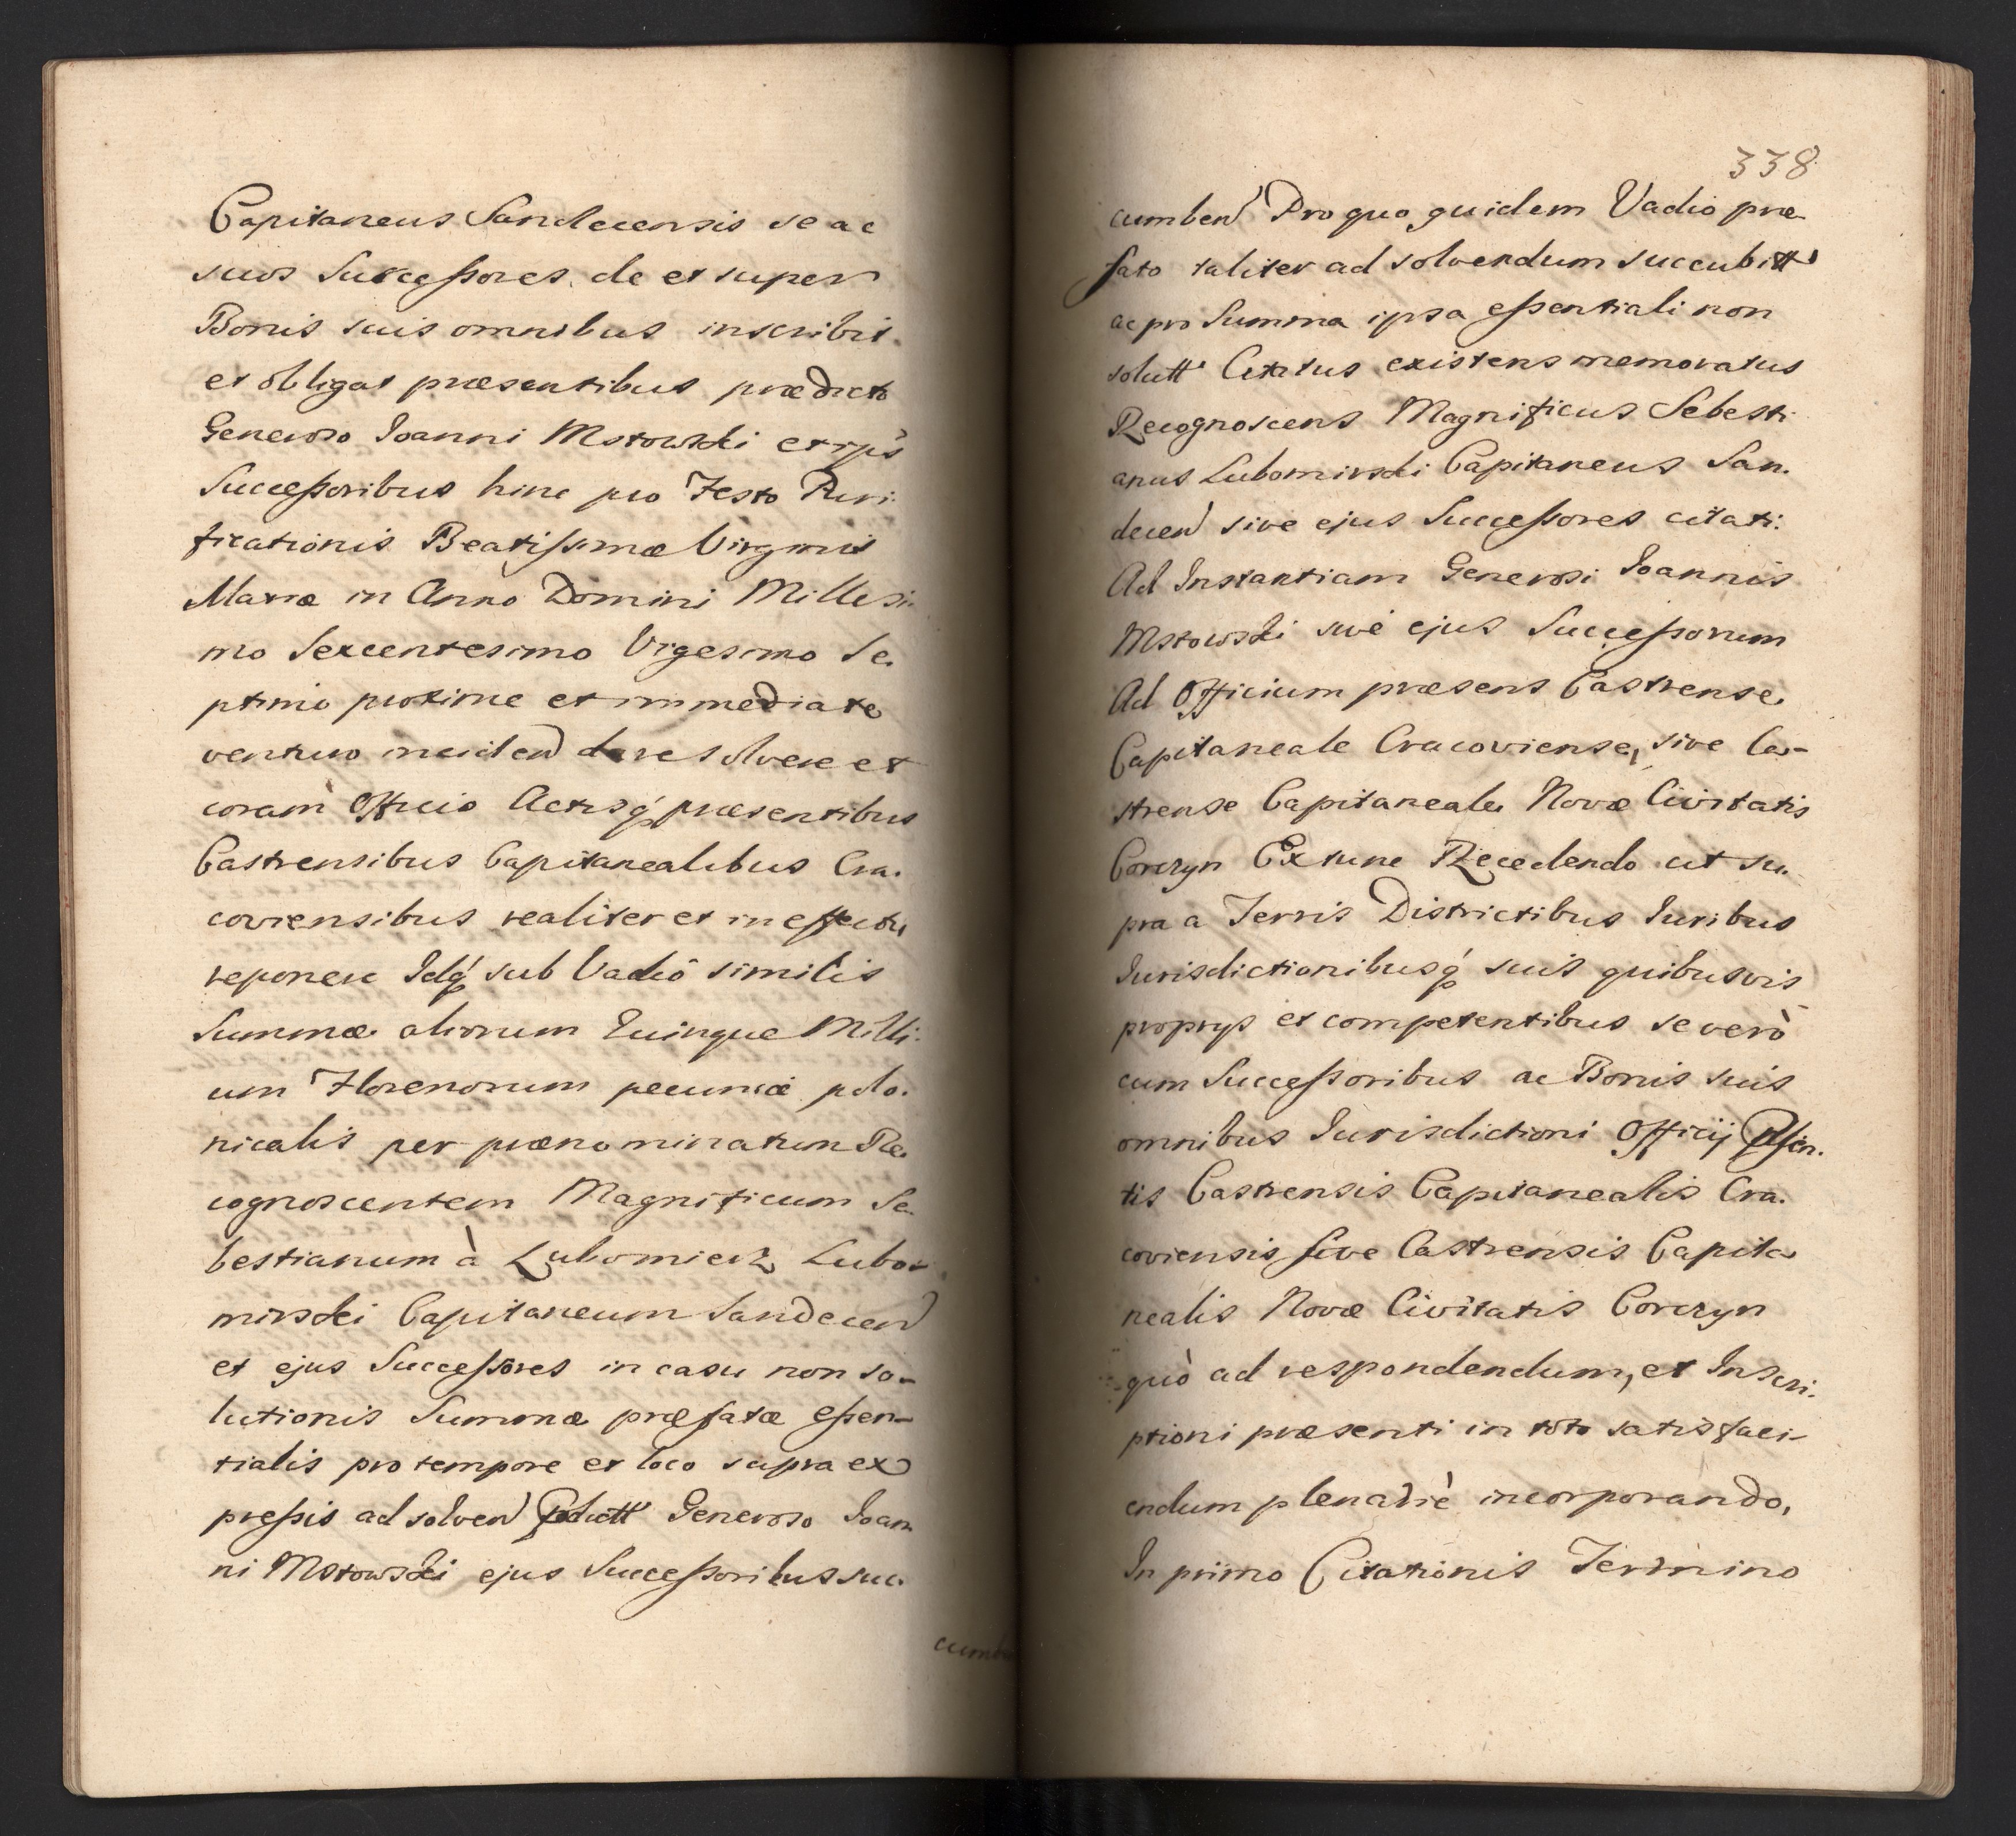 Capitaneus Sandecensis se ac
suos Successores de et super
Bonis suis omnibus inscribit
et obligat præsentibus prædicto
Generoso Joanni Mstowski et ejus
Successoribus hinc pro Festo Puri-
ficationis Beatissimæ Virginis
Mariæ in Anno Domini Millesi-
mo Sexcentesimo Vigesimo Se-
ptimo proxime et immediate
venturo inciden dare solvere et
coram Officio Actisq præsentibus
Castrensibus Capitanealibus Cra-
coviensibus realiter et in effectu
reponere Idq sub Vadiô similis
Summæ aliorum Quinque Milli-
um Florenorum pecuniæ polo-
nicalis per prænominatum Re-
cognoscentem Magnificum Se-
bestianum à Lubomierz Lubo-
mirski Capitaneum Sandecen
et ejus Successores in casu non so-
lutionis Summæ præfatæ essen-
tialis pro tempore et loco supra ex
pressis ad solven Generoso Joan-
ni Mstowski ejus Successoribus suc-
cumben
338
cumben Pro quo quidem Vadio præ-
fato taliter ad solvendum succubitt
ac pro Summa ipsa essentiali non
solutt Citatus existens memoratus
Recognoscens Magnificus Sebesti-
anus Lubomirski Capitaneus San-
decen sive ejus Successores citati
Ad Instantiam Generosi Joannis
Mstowski sive ejus Successorum
Ad Officium præsens Castrense
Capitaneale Cracoviense, sive Ca-
strense Capitaneale Novæ Civitatis
Corczyn Ex tunc Recedendo ut su-
pra a Terris Districtibus Juribus
Jurisdictionibusq suis quibusvis
proprys et competentibus se verò
cum Successoribus ac Bonis suis
omnibus Jurisdictioni Officij Psen-
tis Castrensis Capitanealis Cra-
coviensis sive Castrensis Capita-
nealis Novæ Civitatis Corczyn
quò ad respondendum, et Inscri-
ptioni præsenti in toto satisfaci-
endum plenariè incorporando,
In primo Citationis Termino